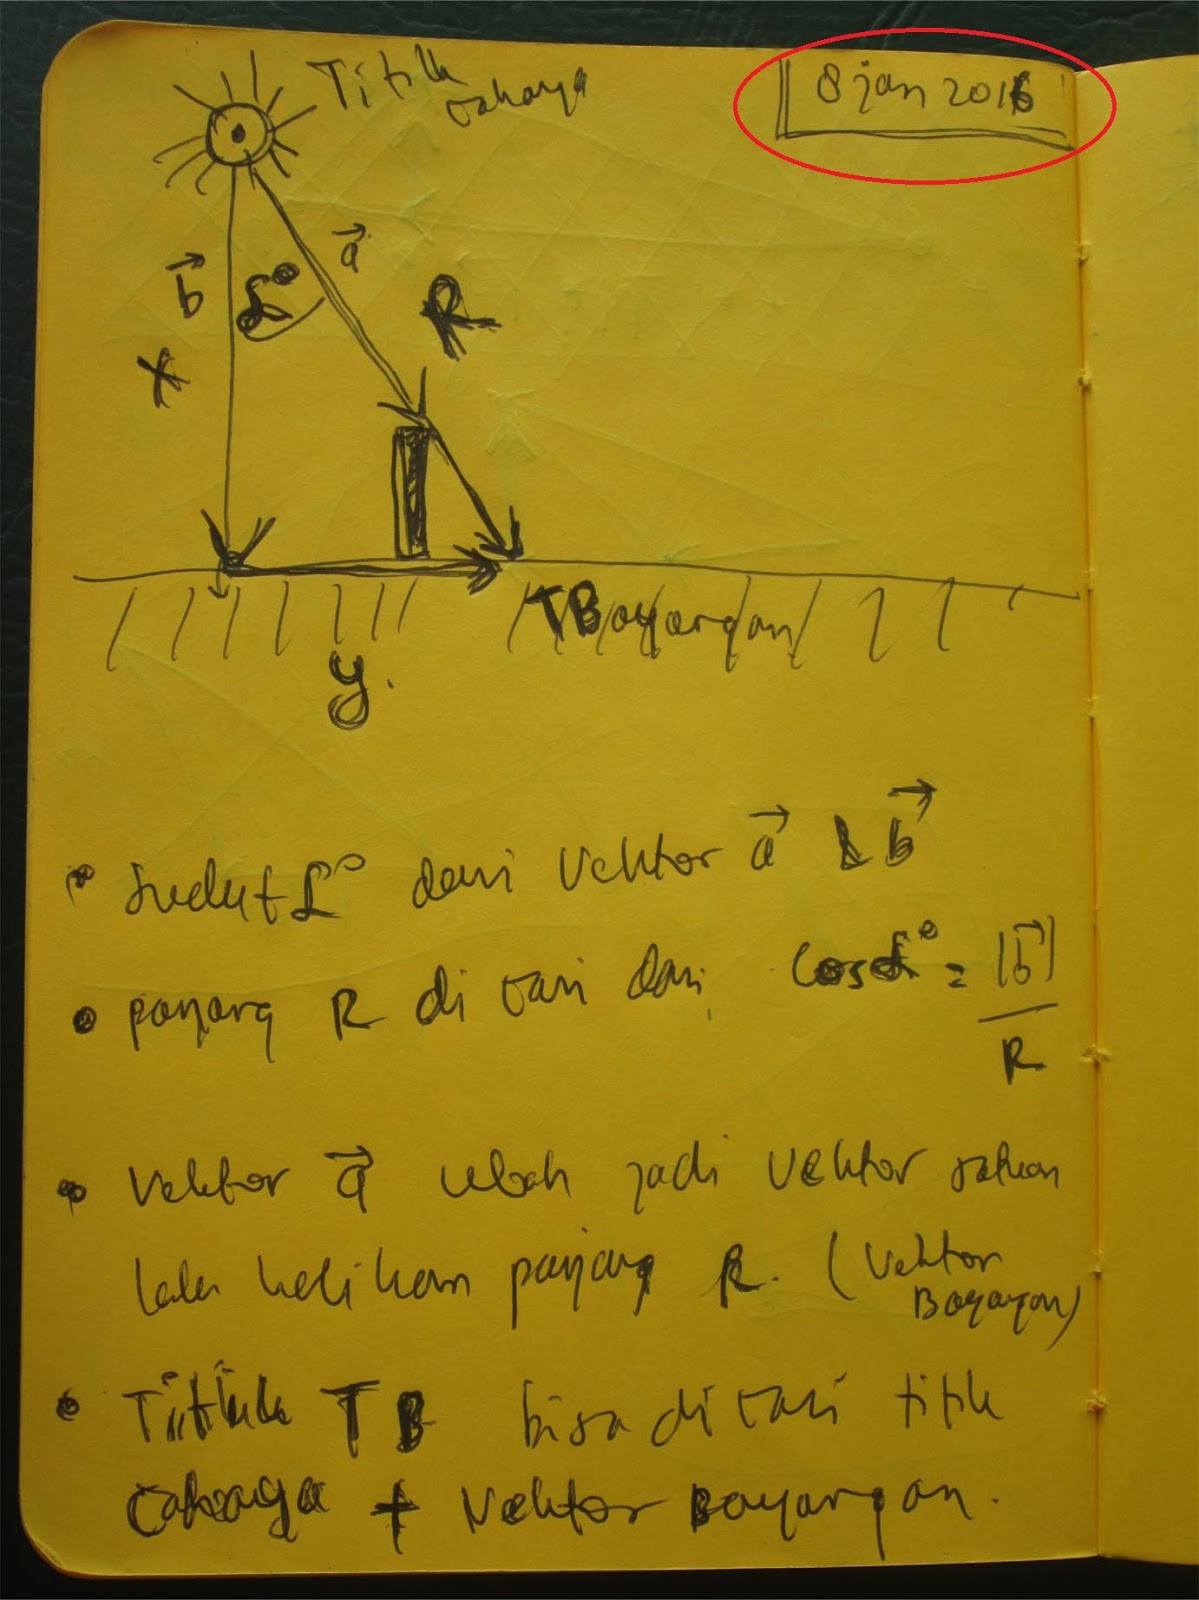 Titik
cahaya
8 jan 2016
a
b
L°
R
X
TBayangan
y.
• sudut L° dari Vektor a & b
• panjang R di cari dari cos L° = |b|
R
• Vektor a ubah jadi Vektor satuan
lalu kalikan panjang R. (Vektor
Bayangan)
• Titik TB bisa di cari titik
cahaya + Vektor Bayangan.